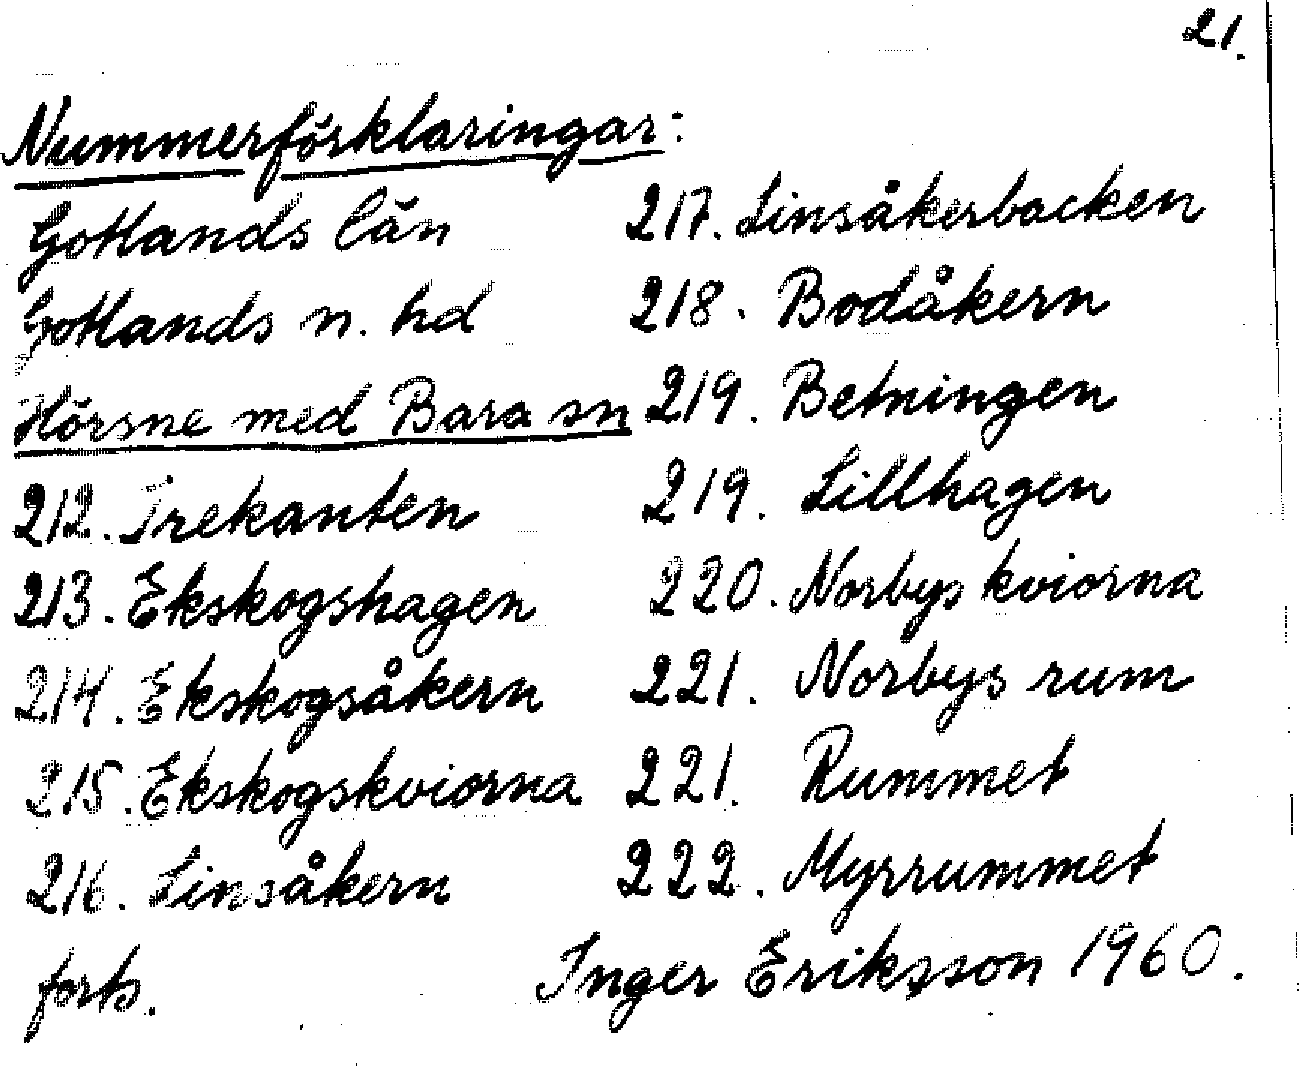 21.
Nummerförklaringar:
Gotlands län
Gotlands n. hd
Hörsne med Bara sn
212. Trekanten
213. Ekskogshagen
214. Ekskogsåkern
215. Ekskogskviorna
216. Linsåkern
forts.
217. Linsåkerbacken
218. Bodåkern
219. Betningen
219. Lillhagen
220. Norbys kviorna
221. Norbys rum
221. Rummet
222. Myrrummet
Inger Eriksson 1960.